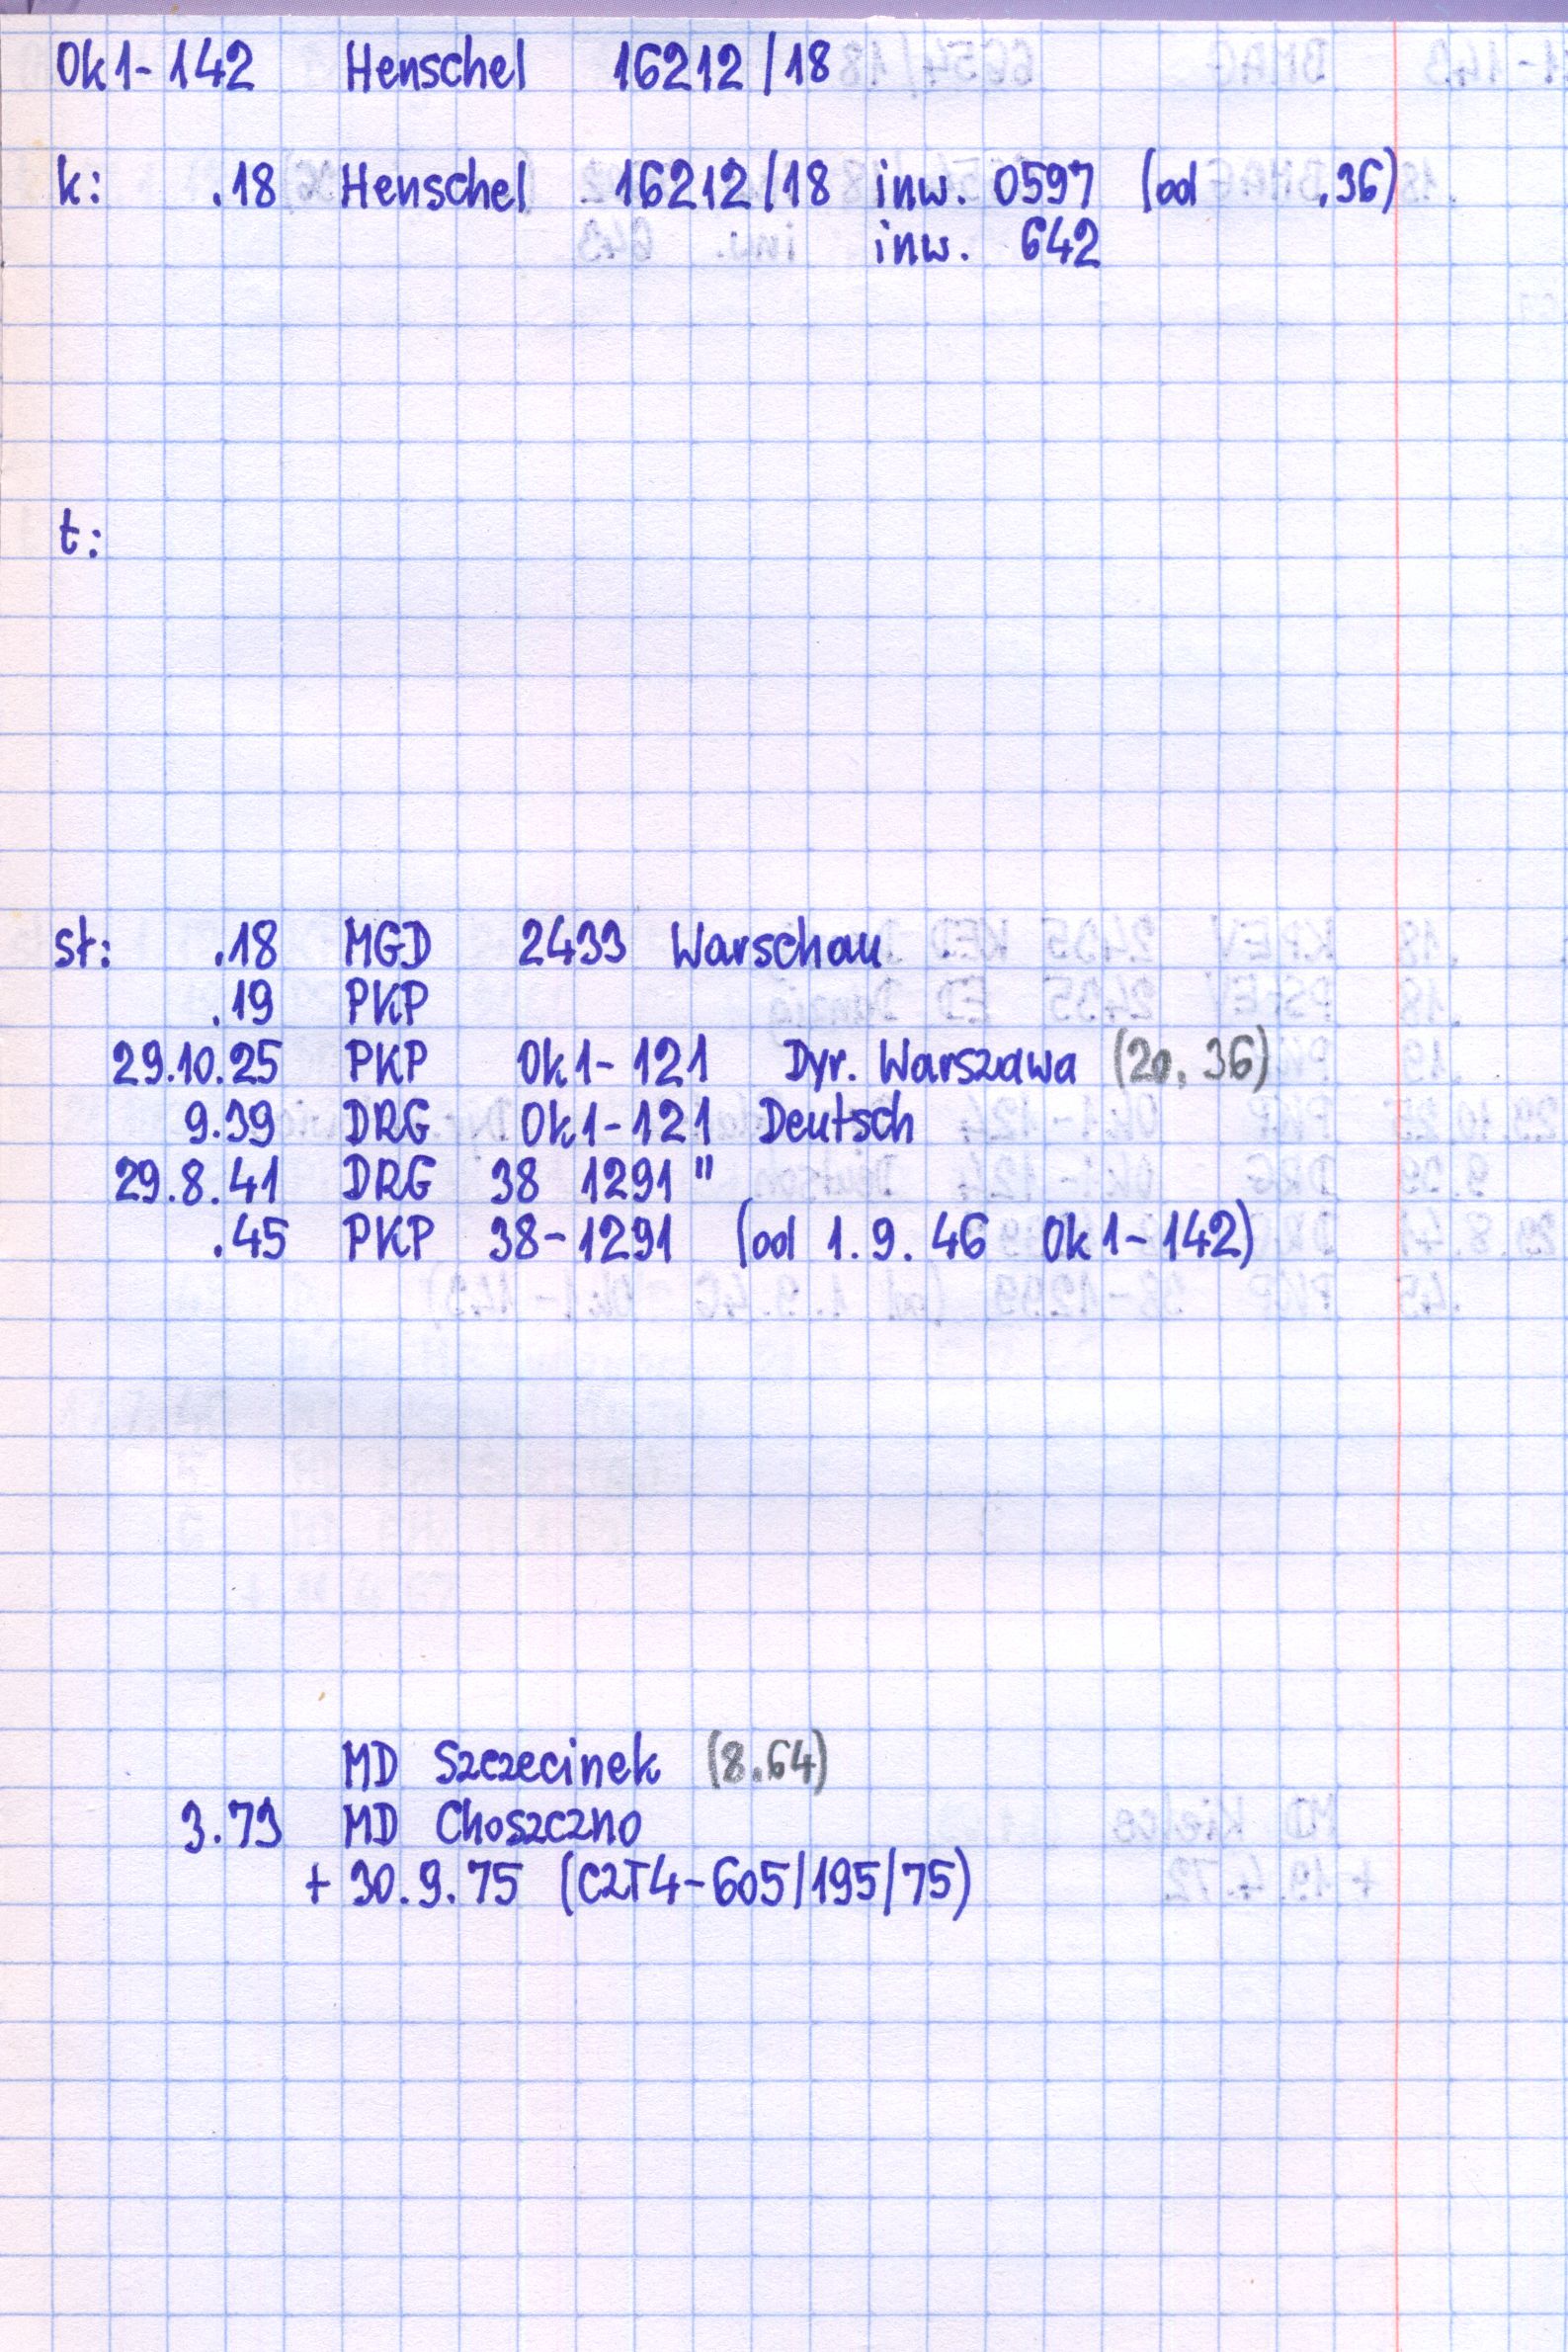 Ok1-142 Henschel 16212/18
k: .18 Henschel 16212/18 inw. 0597 (od .36)
inw. 642
t:
sł: .18 MGD 2433 Warschau
.19 PKP
29.10.25 PKP Ok1-121 Dyr. Warszawa (20, 36)
9.39 DRG Ok1-121 Deutsch
29.8.41 DRG 38 1291 "
.45 PKP 38-1291 (od 1.9.46 Ok1-142)
MD Szczecinek (8.64)
3.73 MD Choszczno
+ 30.9.75 (CZT4-605/195/75)